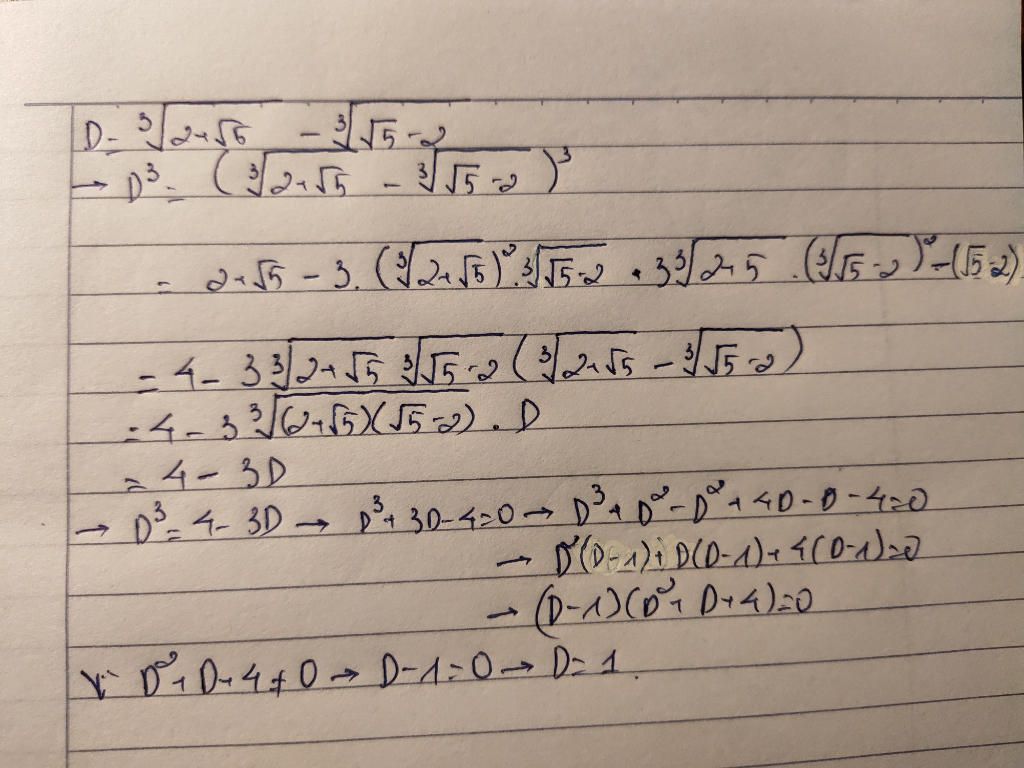 D = ∛(2+√5) - ∛(√5-2)
→ D³ = (∛(2+√5) - ∛(√5-2))³
= 2+√5 - 3.(∛(2+√5))².∛(√5-2) + 3∛(2+5) .(∛(√5-2))² - (√5-2)
= 4 - 3∛(2+√5) ∛(√5-2) (∛(2+√5) - ∛(√5-2))
= 4 - 3∛((2+√5)(√5-2)) . D
= 4 - 3D
→ D³ = 4 - 3D → D³ + 3D - 4 = 0 → D³ + D² - D² + 4D - D - 4 = 0
→ D²(D-1) + D(D-1) + 4(D-1) = 0
→ (D-1)(D² + D + 4) = 0
Vì D² + D + 4 ≠ 0 → D - 1 = 0 → D = 1.